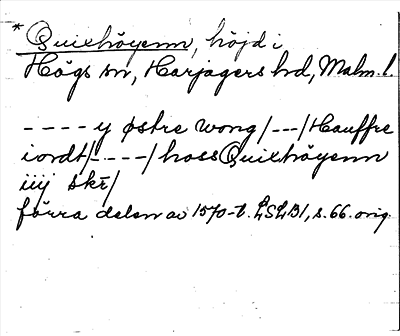 * Quixhöyenn, höjd i
Högs sn, Harjagers hd, Malm. l.
---- y østre wong/---/Hauffre
iordt/----/hoss Quixhöyenn
iiij skr/
förra delen av 1570-t. LSLB1, s. 66. orig.